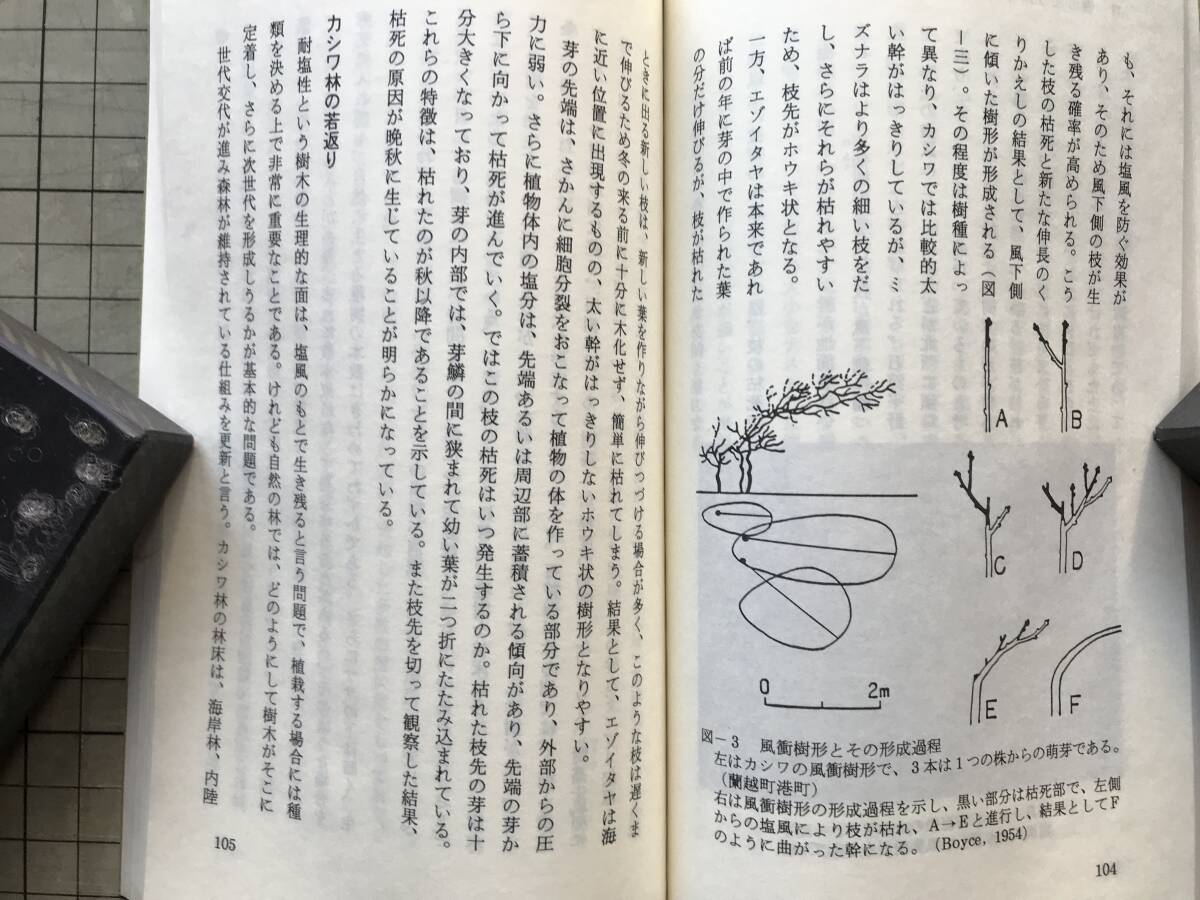 も、それには塩風を防ぐ効果が
あり、そのため風下側の枝が生
き残る確率が高められる。こう
した枝の枯死と新たな伸長のく
りかえしの結果として、風下側
に傾いた樹形が形成される(図
ー三)。その程度は樹種によっ
て異なり、カシワでは比較的太
い幹がはっきりしているが、ミ
ズナラはより多くの細い枝をだ
し、さらにそれらが枯れやすい
ため、枝先がホウキ状となる。
一方、エゾイタヤは本来であれ
ば前の年に芽の中で作られた葉
の分だけ伸びるが、枝が枯れた
A
B
C
D
E
F
0
2m
図-3 風衝樹形とその形成過程
左はカシワの風衝樹形で、3本は1つの株からの萌芽である。
(蘭越町港町)
右は風衝樹形の形成過程を示し、黒い部分は枯死部で、左側
からの塩風により枝が枯れ、A→Eと進行し、結果としてF
のように曲がった幹になる。(Boyce, 1954)
104
ときに出る新しい枝は、新しい葉を作りながら伸びつづける場合が多く、このような枝は遅くま
で伸びるため冬の来る前に十分に木化せず、簡単に枯れてしまう。結果として、エゾイタヤは海
に近い位置に出現するものの、太い幹がはっきりしないホウキ状の樹形となりやすい。
芽の先端は、さかんに細胞分裂をおこなって植物の体を作っている部分であり、外部からの圧
力に弱い。さらに植物体内の塩分は、先端あるいは周辺部に蓄積される傾向があり、先端の芽か
ら下に向かって枯死が進んでいく。ではこの枝の枯死はいつ発生するのか。枯れた枝先の芽は十
分大きくなっており、芽の内部では、芽鱗の間に狭まれて幼い葉が二つ折にたたみ込まれている。
これらの特徴は、枯れたのが秋以降であることを示している。また枝先を切って観察した結果、
枯死の原因が晩秋に生じていることが明らかになっている。
カシワ林の若返り
耐塩性という樹木の生理的な面は、塩風のもとで生き残ると言う問題で、植栽する場合には種
類を決める上で非常に重要なことである。けれども自然の林では、どのようにして樹木がそこに
定着し、さらに次世代を形成しうるかが基本的な問題である。
世代交代が進み森林が維持されている仕組みを更新と言う。カシワ林の林床は、海岸林、内陸
105